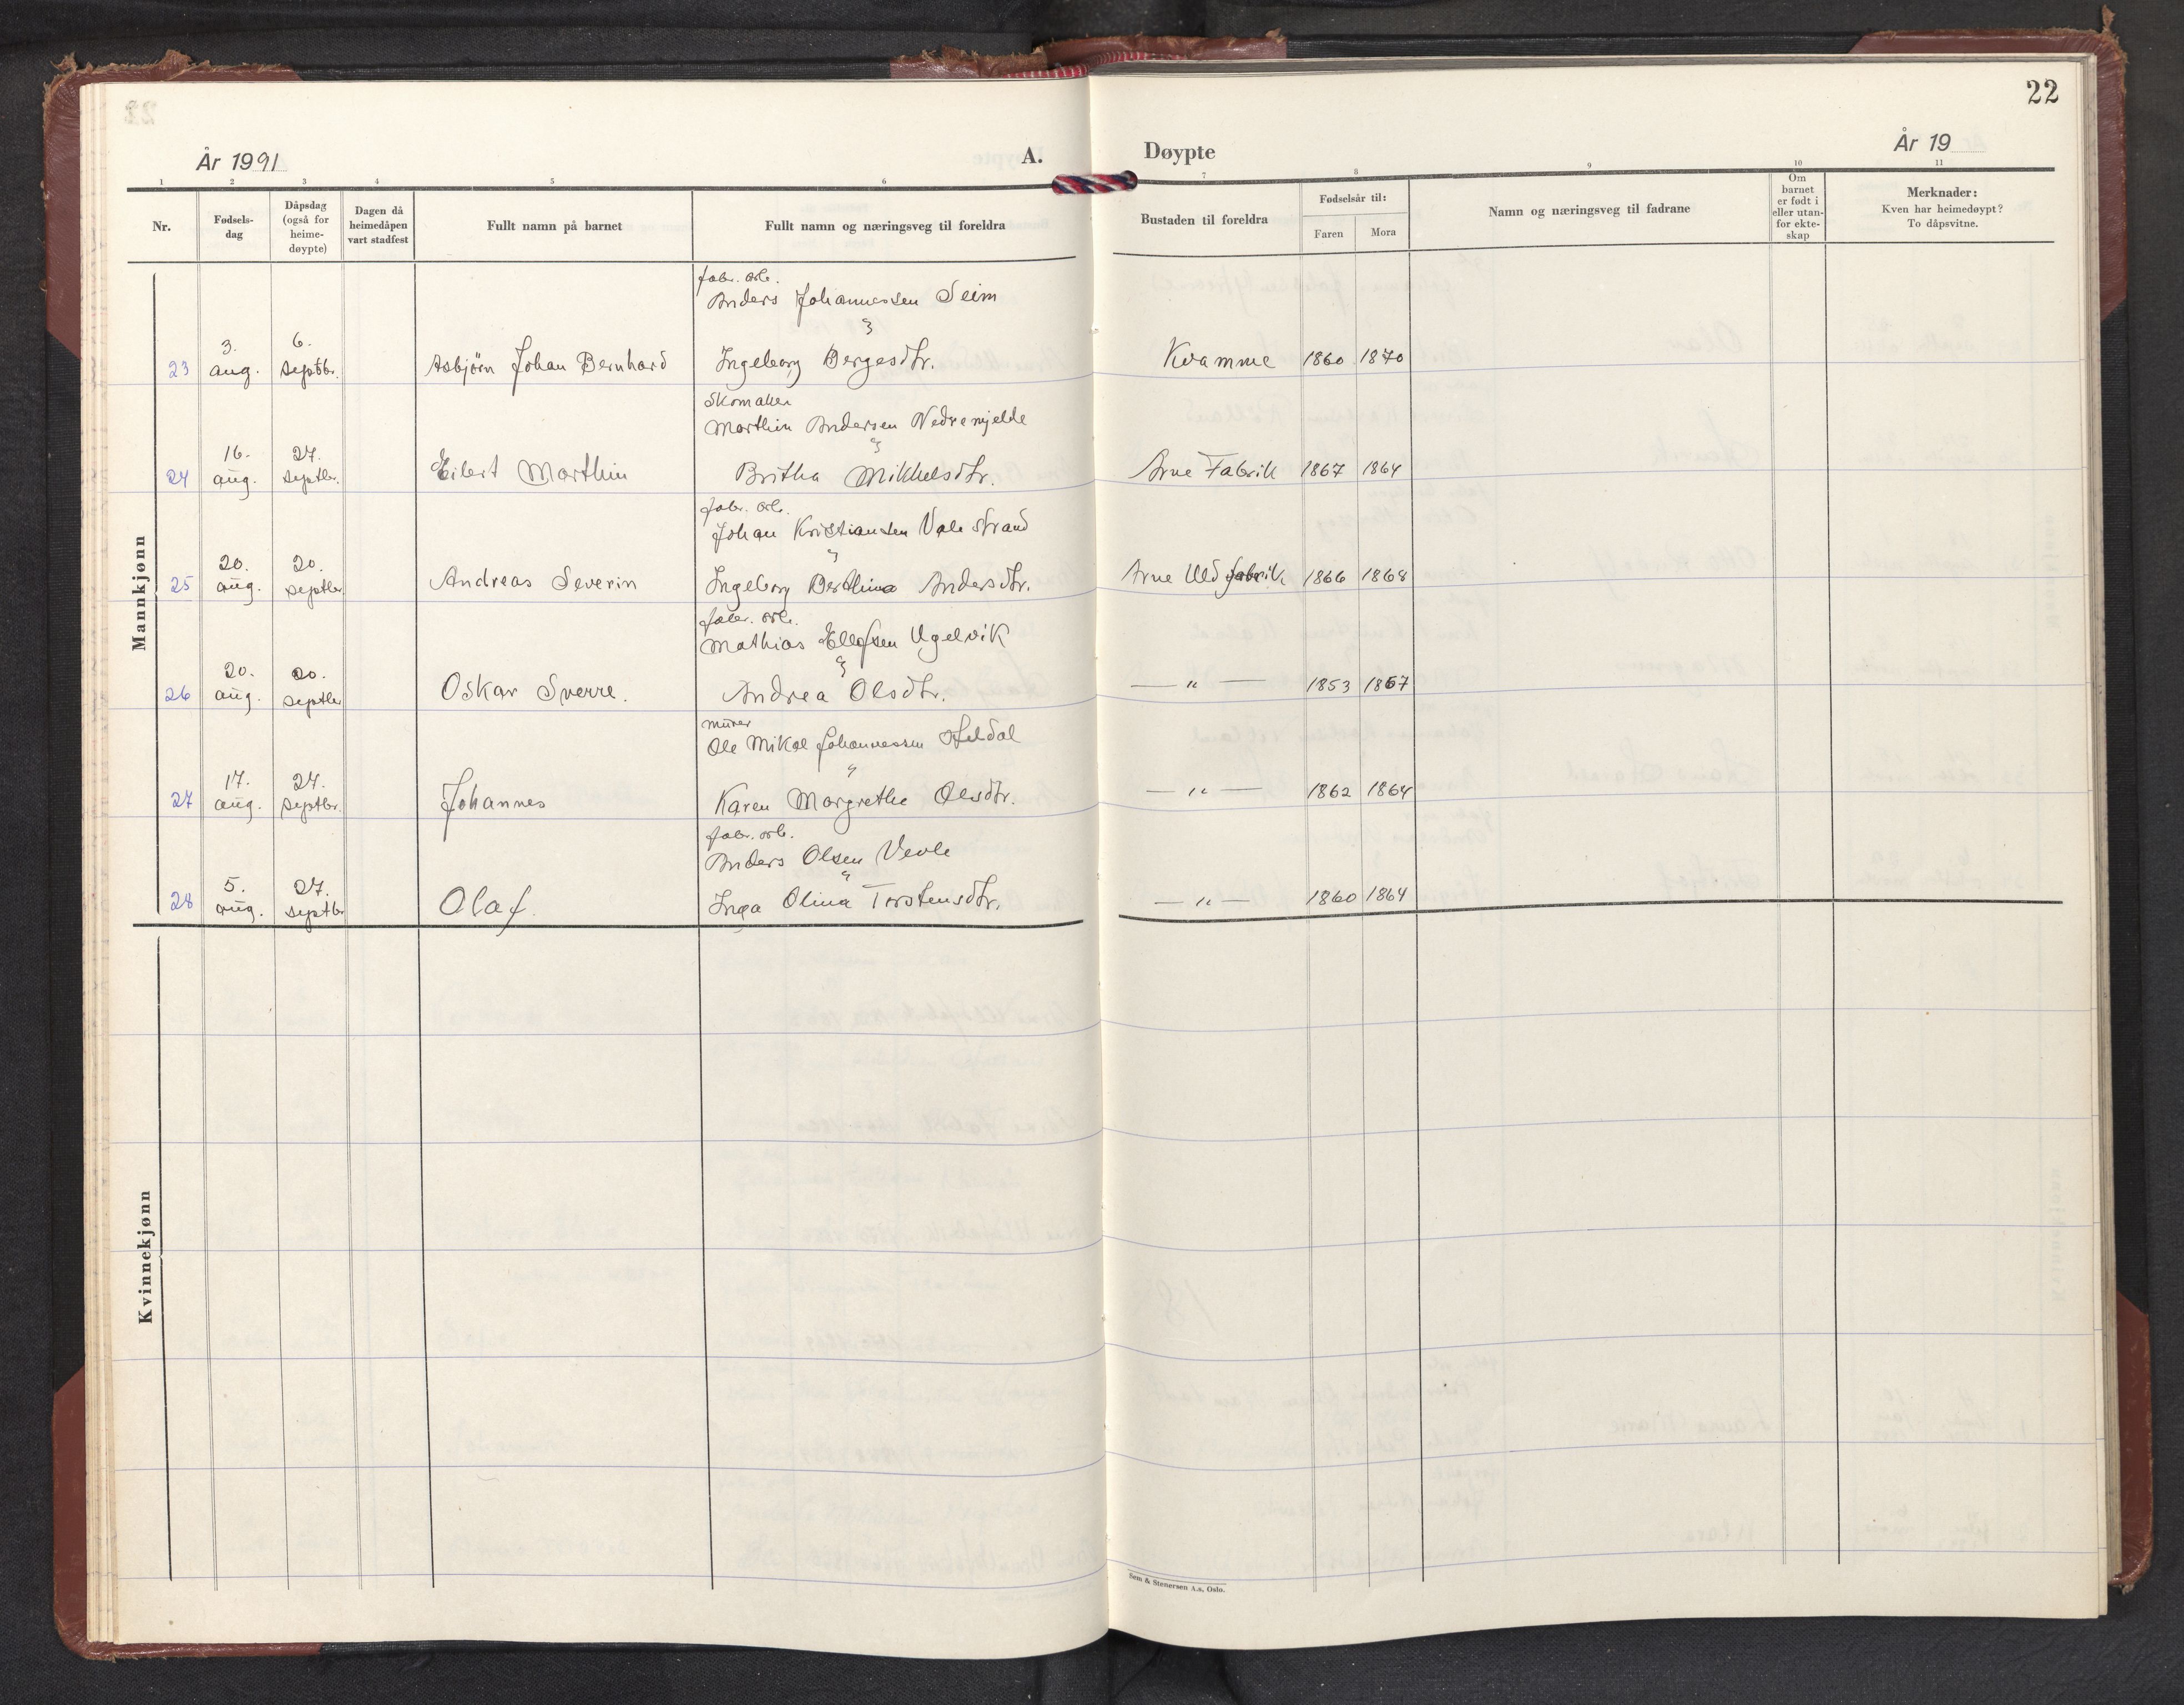 22
År 1991
A.
Døypte
År 19
1 2 3 4 5 6 7 8 9 10 11
Nr.
Fødsels-
dag
Dåpsdag
(også for
heime-
døypte)
Dagen då
heimedåpen
vart stadfest
Fullt namn på barnet
Fullt namn og næringsveg til foreldra
Bustaden til foreldra
Fødselsår til:
Faren Mora
Namn og næringsveg til fadrane
Om
barnet
er født i
eller utan-
for ekte-
skap
Merknader:
Kven har heimedøypt?
To dåpsvitne.
Mannkjønn
fabr. arb.
Anders Johannessen Seim
3. 6.
23 aug. septbr. Asbjörn Johan Bernhard Ingeborg Bergesdtr. Kvamme 1860 1870
Skomaker
Marthin Andersen Nedremjelde
16. 27.
24 aug. septbr. Eilert Marthin Britha Mikkelsdtr. Arne Fabrik 1867 1864
fabr. arb.
Johan Kristiansen Valestrand
20. 20.
25 aug. septbr. Andreas Severin Ingeborg Berthina Andersdtr. Arne Uldfabrik 1866 1868
fabr. arb.
Mathias Ellefsen Ugelvik
20. 20.
26 aug. septbr. Oskar Sverre. Andrea Olsdtr. — " — 1853 1867
murer
Ole Mikal Johannessen
17. 27.
27 aug. septbr. Johannes Karen Margrethe Olsdtr. — " — 1862 1864
fabr. arb.
Anders Olsen Vevle
5. 27.
28 aug. septbr Olaf. Inga Olina Torstensdtr. — " — 1860 1864
Kvinnekjønn
Sem & Stenersen A.s, Oslo.